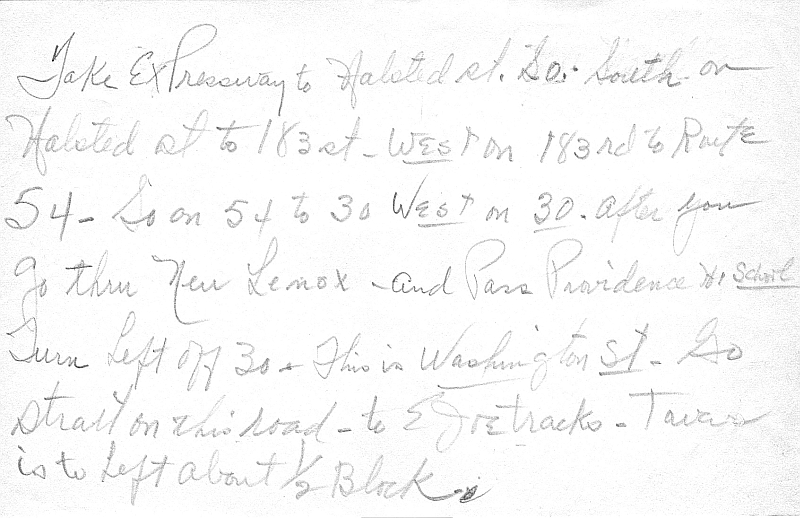 Take ExPressway to Halsted st. So. South on
Halsted st to 183 st - West on 183rd to Route
54 - So on 54 to 30 West on 30. after you
go thru New Lenox - and Pass Providence Hi School
Turn Left off 30 - This is Washington St - Go
strait on this road - to E J o E tracks -
is to Left about 1/2 Block.